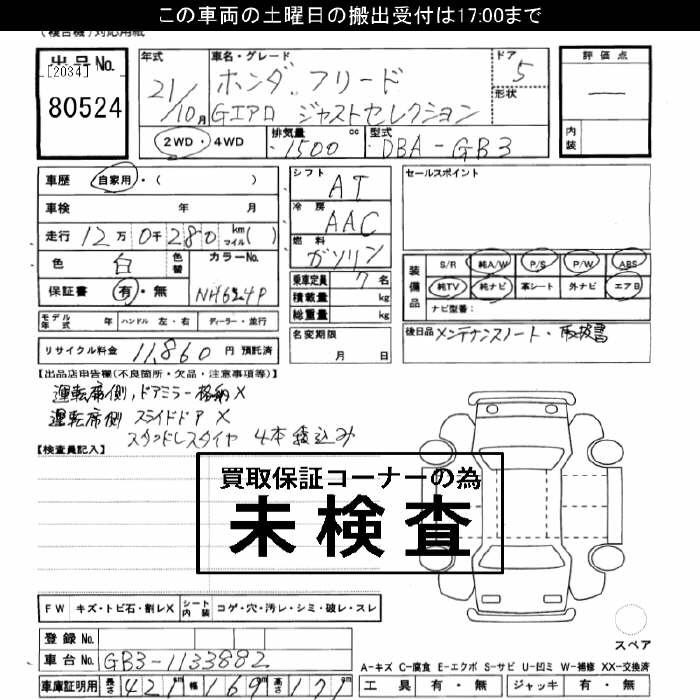 この車両の土曜日の搬出受付は17:00まで
(複合機)対応用紙
出品No.
[2034]
80524
年式
21/10月
車名・グレード
ホンダ フリード
Gエアロ ジャストセレクション
ドア
5
形状
評価点
―
内装
2WD・4WD
排気量
1500 cc
型式
DBA-GB3
車歴 自家用・( )
車検 年 月
走行 12万0千280 km マイル( )
色 白 色替
カラーNo.
NH624P
保証書 有・無
シフト
AT
冷房
AAC
燃料
ガソリン
乗車定員 7名
積載量 kg
総重量 kg
名変期限
月 日
セールスポイント
装備品
S/R 純A/W P/S P/W ABS
純TV 純ナビ 革シート 外ナビ エアB
ナビ型番:
後日品 メンテナンスノート・取扱書
モデル年式 年 ハンドル 左・右 ディーラー・並行
リサイクル料金 11,860 円 預託済
【出品店申告欄(不良箇所・欠品・注意事項等)】
運転席側,ドアミラー格納X
運転席側 スライドドア X
スタッドレスタイヤ 4本積込み
【検査員記入】
買取保証コーナーの為
未検査
FW キズ・トビ石・割レX シート内装 コゲ・穴・汚レ・シミ・破レ・スレ
登録No.
車台No. GB3-1133882
車庫証明用 長さ 421cm 幅 169cm 高さ 171cm
スペア
A-キズ C-腐食 E-エクボ S-サビ U-凹ミ W-補修 XX-交換済
工具 有・無 ジャッキ 有・無